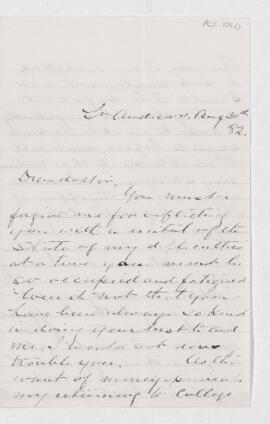 ACC. 1010
St Andrews, Aug 30th
82.
Dear doctor,
You must
forgive me for inflicting
you with a recital of the
State of my difficulties
at a time you must be
so occupied and fatigued
Were it not that you
have been always so kind
in doing your best to aid
me, I would not now
trouble you. As the
want of money prevents
my returning to College